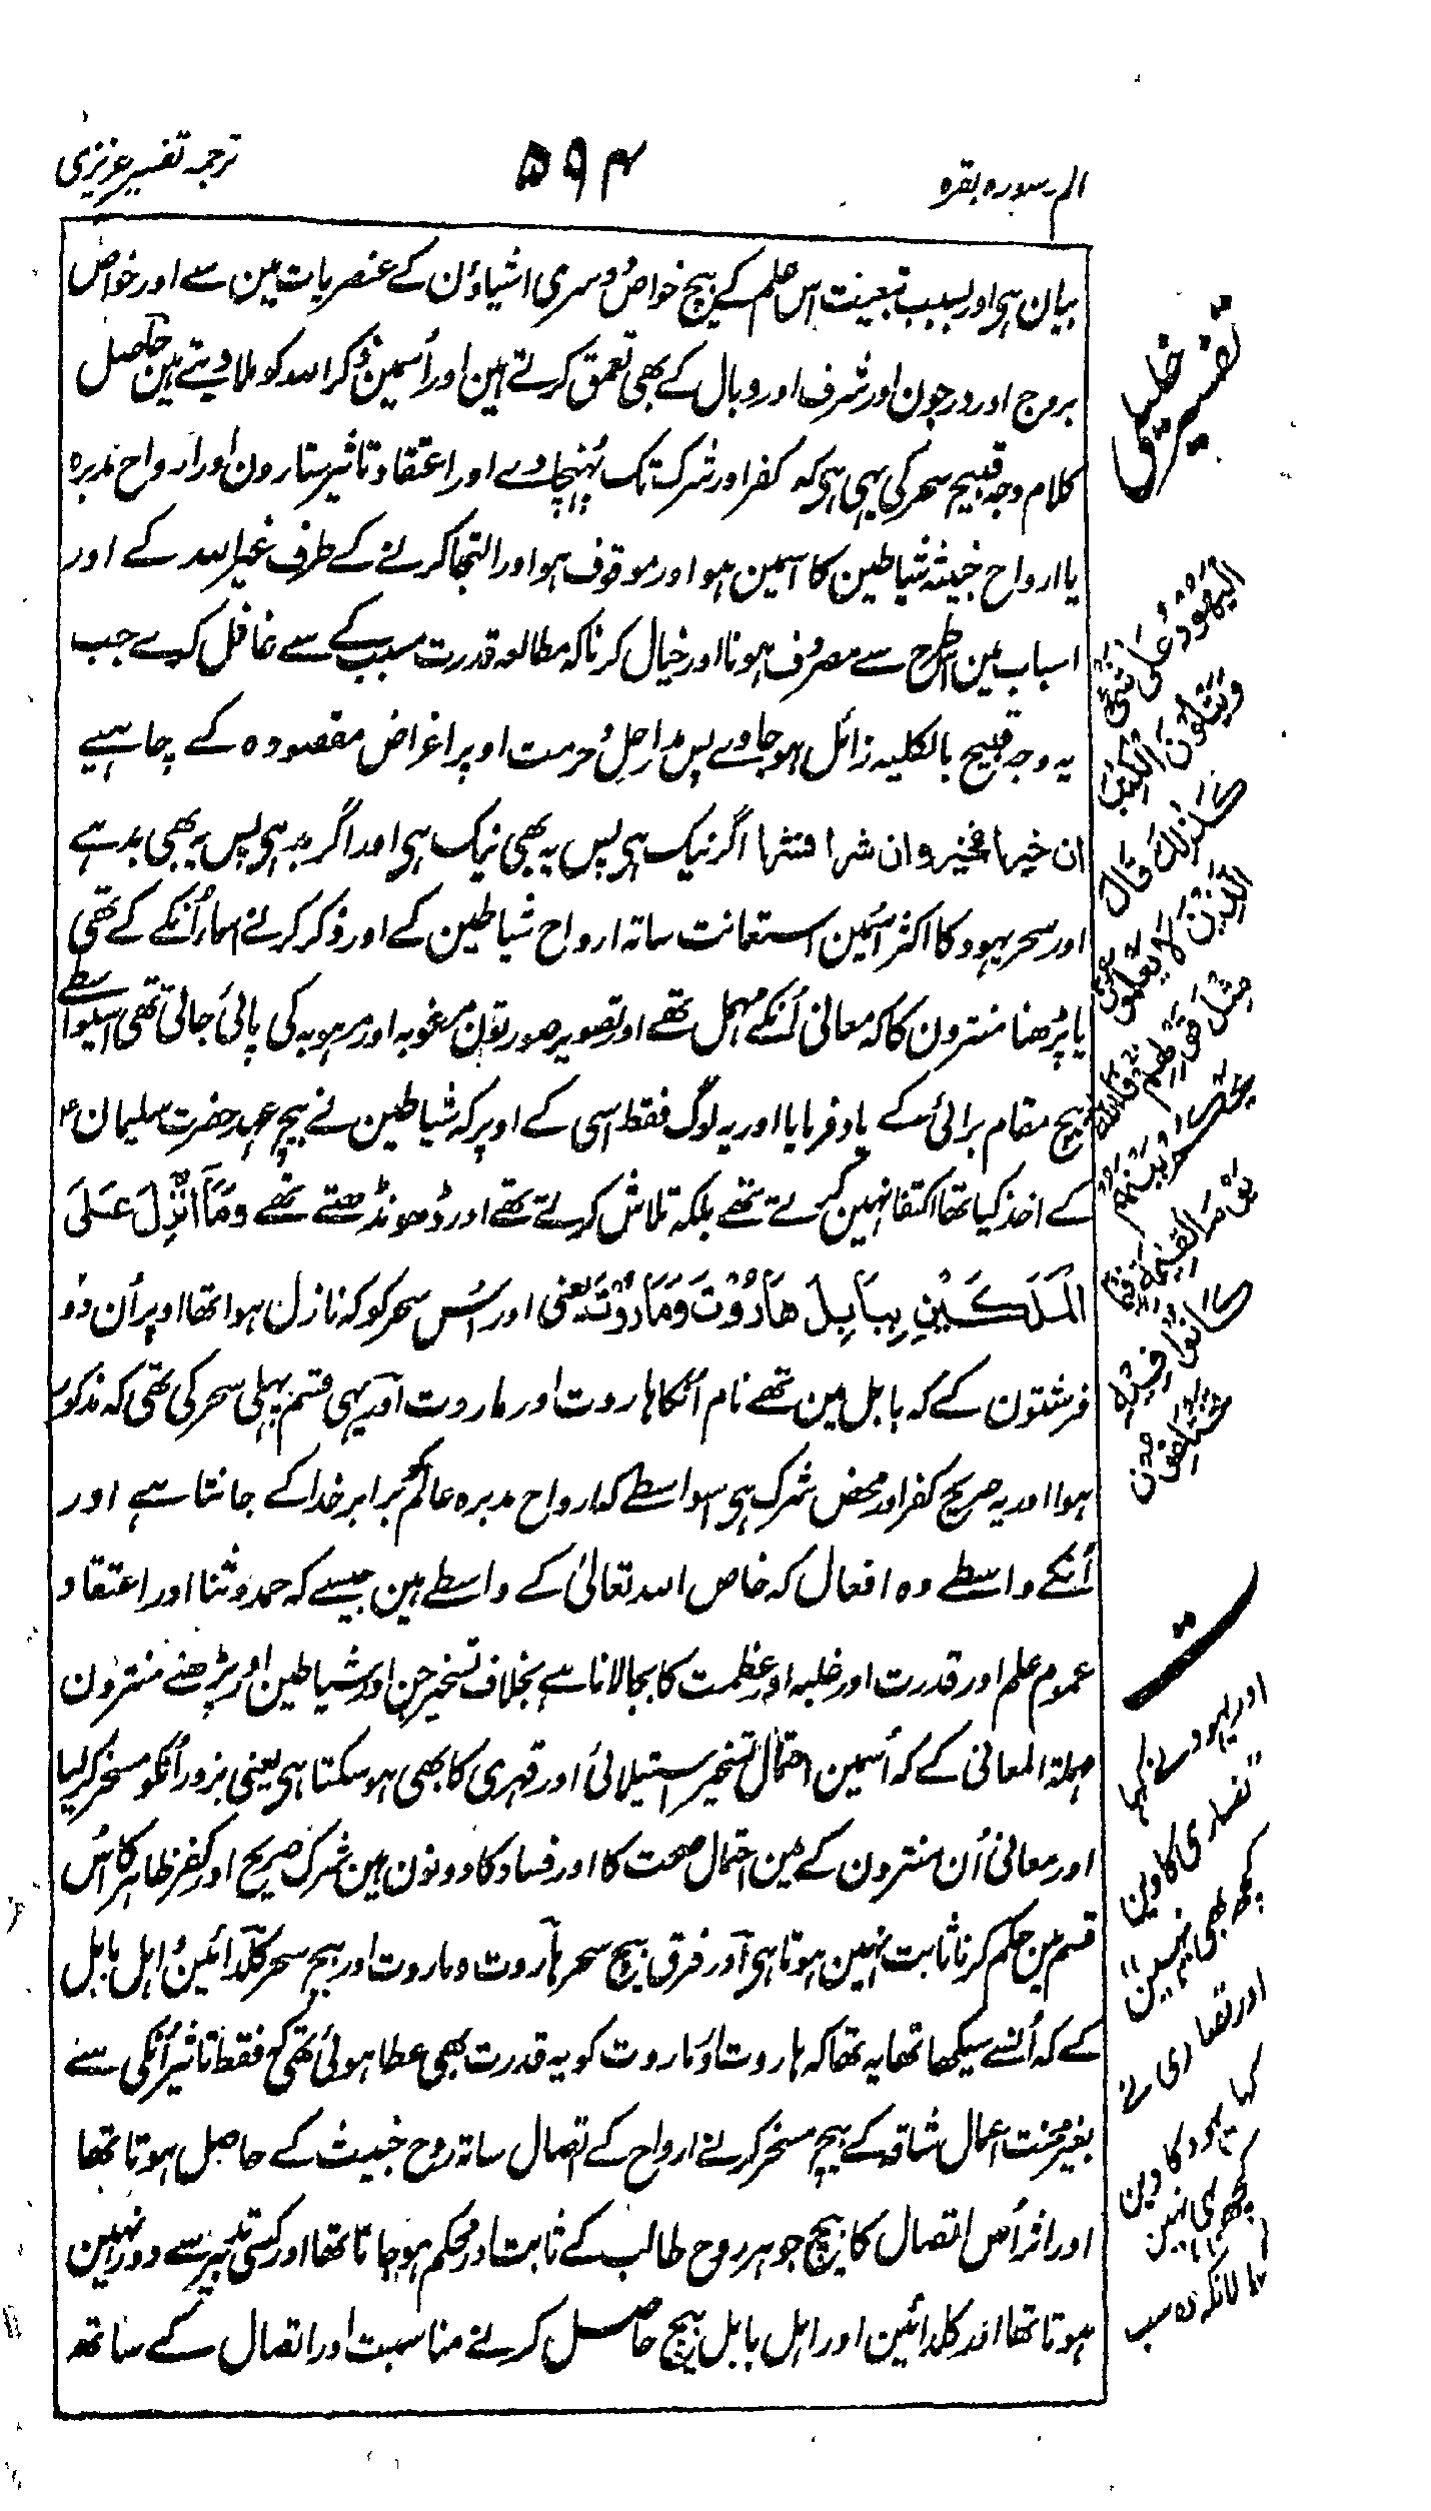 الم سورہ بقرہ
۵۹۴
ترجمہ تفسیر عزیزی
بیان ہی اور بسبب تبعیت اس علم کے بیچ خواص دوسری اشیاؤن کے عنصریات مین سے اور خواص
بروج اور درجون اور شرف اور وبال کے بھی تعمق کرتے ہین اور اُسمین ذکر اللہ کو ملا دیتے ہین حاصل
کلام وجہ قبیح سحر کی یہی ہی کہ کفر اور شرک تک پہنچاوے اور اعتقاد تاثیر ستارون اور ارواح مدبرہ
یا ارواح خبیثہ شیاطین کا اسمین ہو اور موقوف ہو اور التجا کرنے کے طرف غیر اللہ کے اور
اسباب مین اس طرح سے مصروف ہونا اور خیال کرنا کہ مطالعہ قدرت مسبب کے سے غافل کرے جب
یہ وجہ قبیح بالکلیہ زائل ہو جاوے پس مدار حل و حرمت اوپر اغراض مقصودہ کے چاہیے
ان خیرا فخیر و ان شرا فشرا اگر نیک ہی پس یہ بھی نیک ہی اور اگر بد ہی پس یہ بھی بد ہے
اور سحر یہود کا اکثر اسمین استعانت ساتہ ارواح شیاطین کے اور ذکر کرنے اسماء اُنکے کے تھی
یا پڑھنا منترون کا کہ معانی اُنکے مہمل تھے اور تصویر صورتون مرغوبہ اور مرہوبہ کی پائی جاتی تھی اسیواسطے
بیچ مقام برائی کے یاد فرمایا اور یہ لوگ فقط اسی کے اوپر کہ شیاطین نے بیچ عہد حضرت سلیمان ؑ
کے اخذ کیا تھا اکتفا نہین کرتے تھے بلکہ تلاش کرتے تھے اور ڈھونڈھتے تھے وَمَآ اُنْزِلَ عَلَی
الْمَلَکَیْنِ بِبَابِلَ ھَارُوْتَ وَمَارُوْتَ یعنی اور اُس سحر کو کہ نازل ہوا تھا اوپر اُن دو
فرشتون کے کہ بابل مین تھے نام اُنکا ہاروت اور ماروت اور یہی قسم پہلی سحر کی تھی کہ مذکور
ہوا اور یہ صریح کفر اور محض شرک ہی اسواسطے کہ ارواح مدبرہ عالم کو برابر خدا کے جانتا ہے اور
اُنکے واسطے وہ افعال کہ خاص اللہ تعالیٰ کے واسطے ہین جیسے کہ حمد و ثنا اور اعتقاد
عموم علم اور قدرت اور غلبہ اور عظمت کا بجا لانا ہے بخلاف تسخیر جن اور شیاطین اور پڑھنے منترون
مہملۃ المعانی کے کہ اُسمین احتمال تسخیر استیلائی اور قہری کا بھی ہو سکتا ہی یعنی بزور اُنکو مسخر کر لیا
اور معانی اُن منترون کے مین احتمال صحت کا اور فساد کا دونون ہین شرک صریح اور کفر ظاہر کا اُس
قسم مین حکم کرنا ثابت نہین ہوتا ہی اور فرق بیچ سحر ہاروت و ماروت اور بیچ سحر کلدائین اہل بابل
کے کہ اُنسے سیکھا تھا یہ تھا کہ ہاروت اور ماروت کو یہ قدرت بھی عطا ہوئی تھی کہ فقط تاثیر اُنکی سے
بغیر محنت اعمال شاقہ کے بیچ مسخر کرنے ارواح کے اتصال ساتہ روح خبیث کے حاصل ہوتا تھا
اور اثر اُس اتصال کا بیچ جوہر روح طالب کے ثابت اور محکم ہو جاتا تھا اور کسی تدبیر سے دور نہین
ہوتا تھا اور کلدائین اور اہل بابل بیچ حاصل کرنے مناسبت اور اتصال کے ساتھ
تفسیر خلیلی
الیھود علی شئ
ویتلون الکتب
کذلک قال
الذین لا یعلمون
مثل قولھم فاللہ
یحکم بینھم
یوم القیمۃ فیما
کانوا فیہ
یختلفون
ت
اور یہود نے کہا
نصاری کا دین
کچھ بھی نہین
اور نصاری نے
کہا یہود کا دین
کچھ بھی نہین
حالانکہ وہ سب